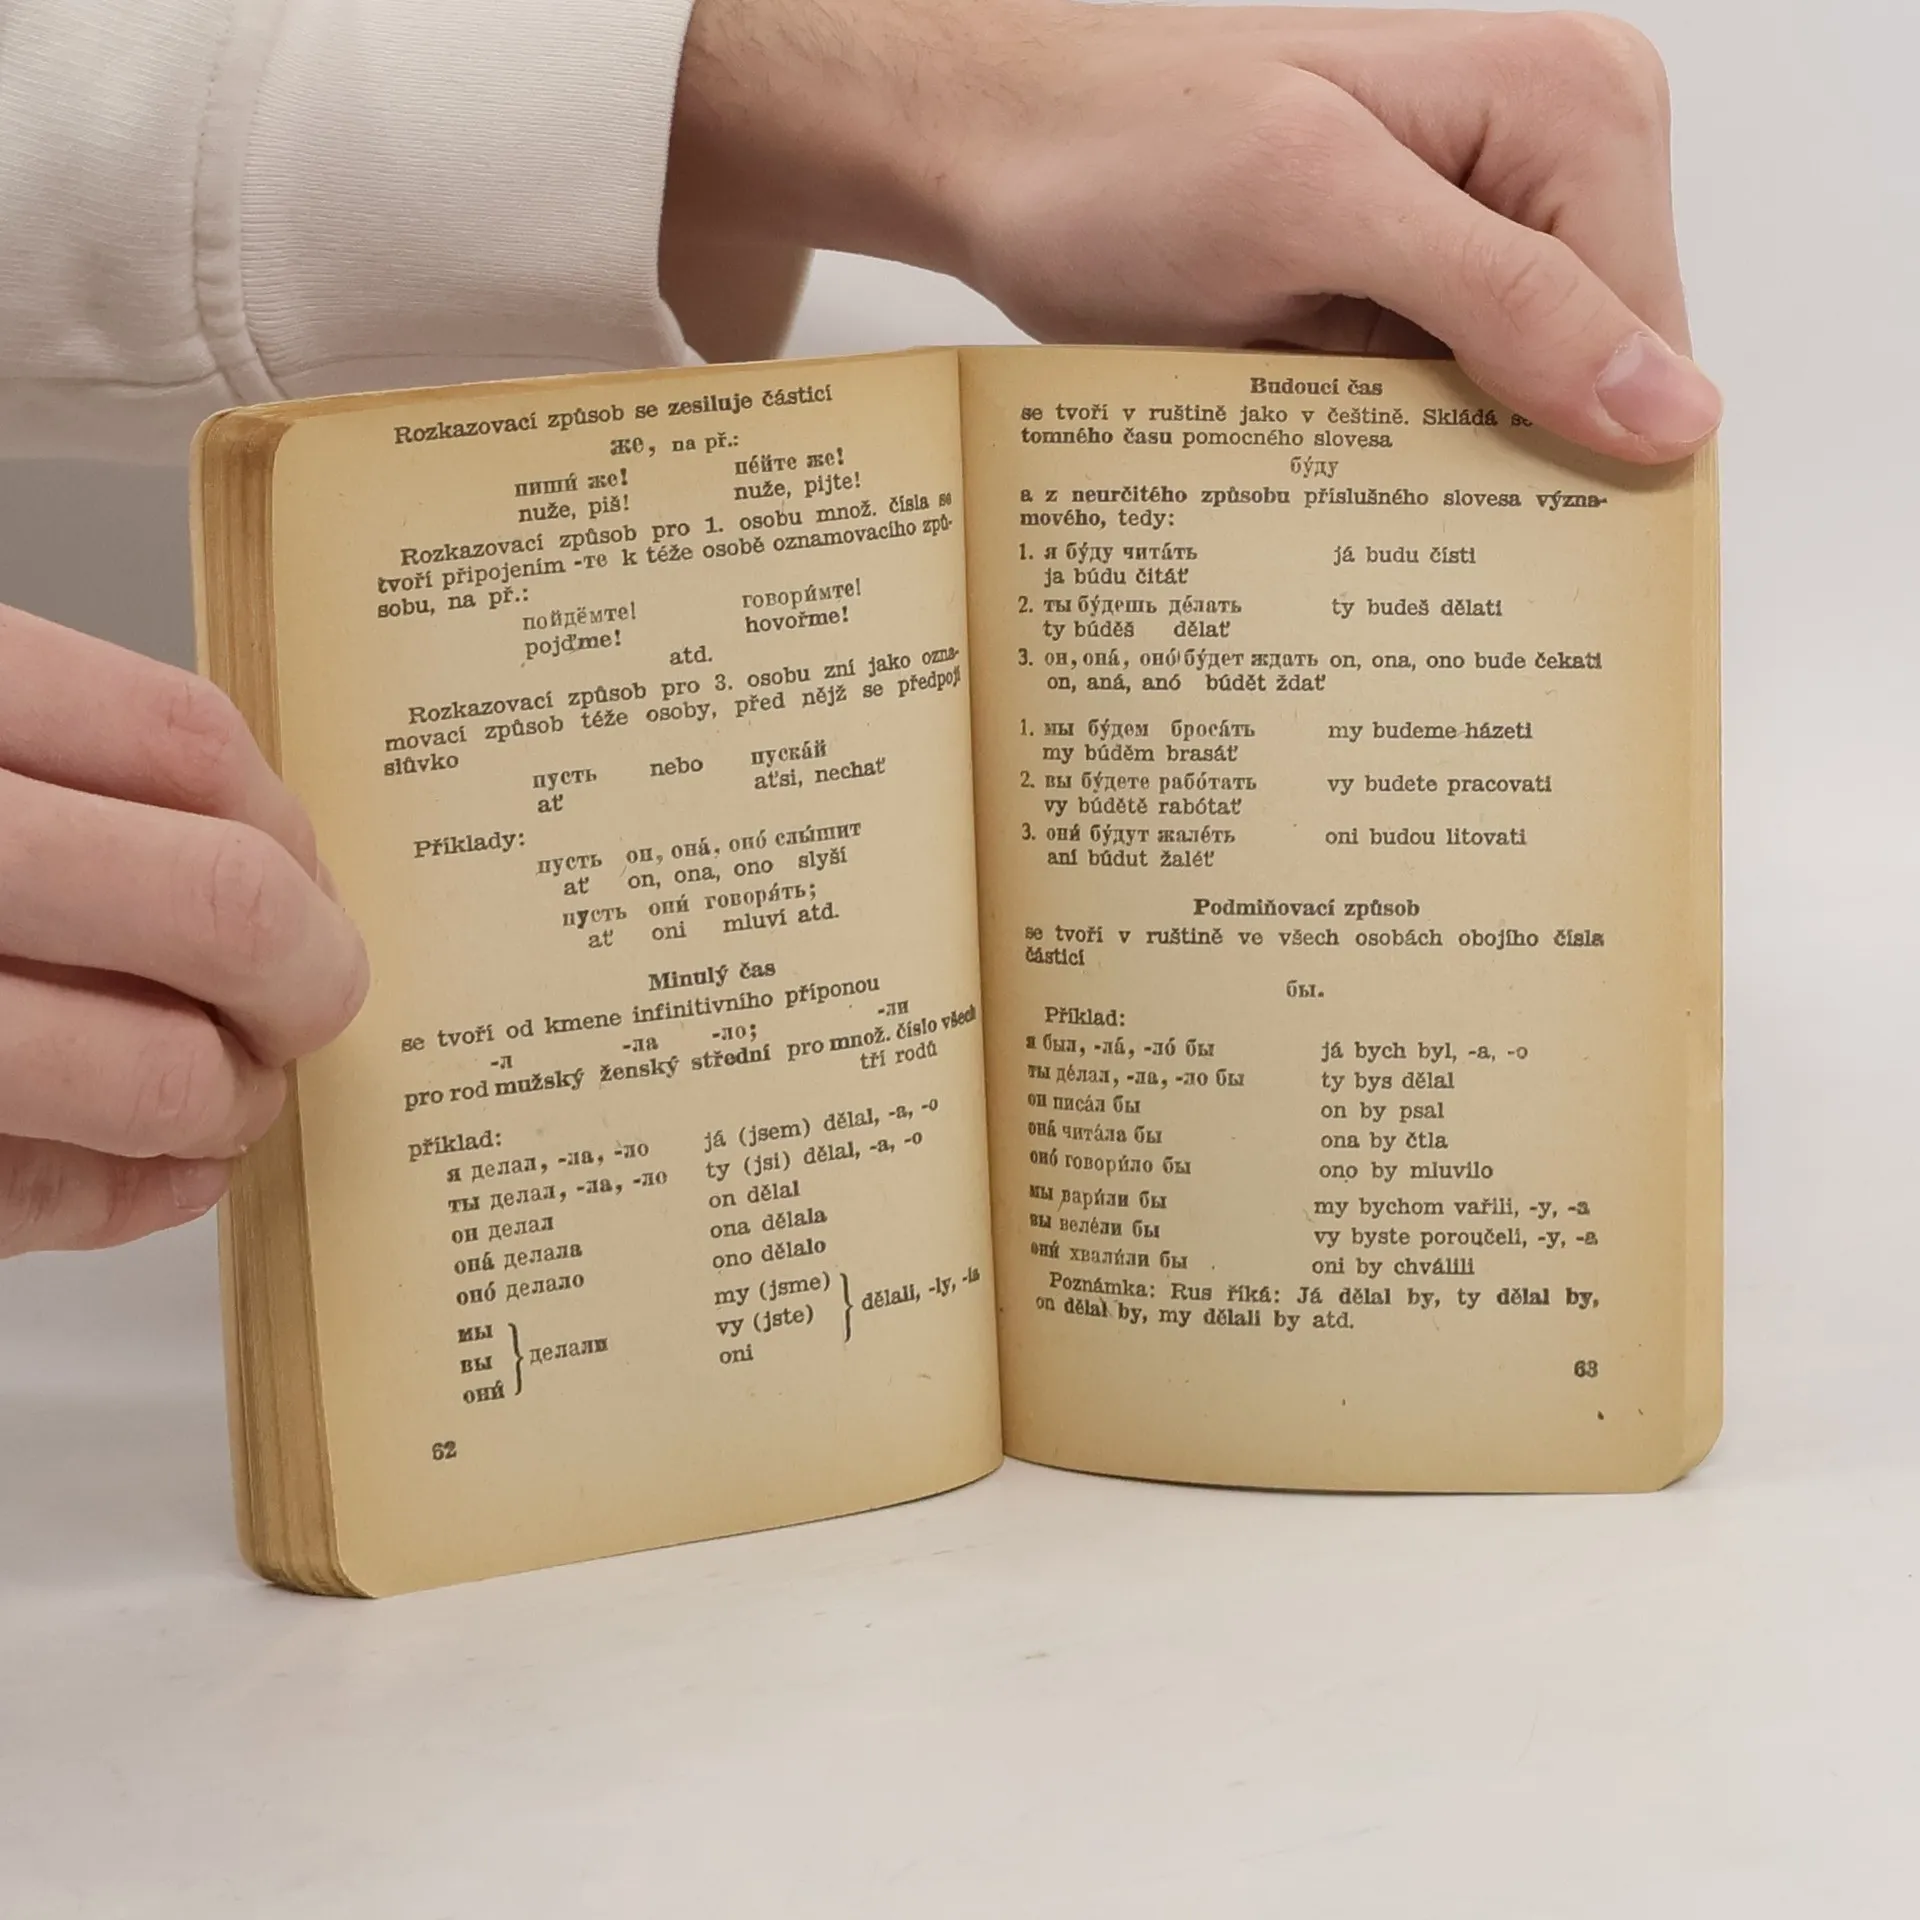 Rozkazovací způsob se zesiluje částicí
же, na př.:
пиши́ же! пе́йте же!
nuže, piš! nuže, pijte!
Rozkazovací způsob pro 1. osobu množ. čísla se
tvoří připojením -те k téže osobě oznamovacího způ-
sobu, na př.:
пойдёмте! говори́мте!
pojďme! hovořme!
atd.
Rozkazovací způsob pro 3. osobu zní jako ozna-
movací způsob téže osoby, před nějž se předpojí
slůvko
пусть nebo пуска́й
ať ať si, nechať
Příklady:
пусть он, она́, оно́ слы́шит
ať on, ona, ono slyší
пусть они́ говоря́ть;
ať oni mluví atd.
Minulý čas
se tvoří od kmene infinitivního příponou
-л -ла -ло; -ли
pro rod mužský ženský střední pro množ. číslo všech
tří rodů
příklad:
я делал, -ла, -ло já (jsem) dělal, -a, -o
ты делал, -ла, -ло ty (jsi) dělal, -a, -o
он делал on dělal
она́ делала ona dělala
оно́ делало ono dělalo
мы my (jsme)
вы } делали vy (jste) } dělali, -ly, -la
они́ oni
62
Budoucí čas
se tvoří v ruštině jako v češtině. Skládá se
tomného času pomocného slovesa
бу́ду
a z neurčitého způsobu příslušného slovesa význa-
mového, tedy:
1. я бу́ду чита́ть já budu čísti
ja búdu čitáť
2. ты бу́дешь де́лать ty budeš dělati
ty búděš dělať
3. он, она́, оно́ бу́дет ждать on, ona, ono bude čekati
on, aná, anó búdět ždať
1. мы бу́дем броса́ть my budeme házeti
my búděm brasáť
2. вы бу́дете рабо́тать vy budete pracovati
vy búdětě rabótať
3. они́ бу́дут жале́ть oni budou litovati
aní búdut žaléť
Podmiňovací způsob
se tvoří v ruštině ve všech osobách obojího čísla
částicí
бы.
Příklad:
я был, -ла́, -ло́ бы já bych byl, -a, -o
ты де́лал, -ла, -ло бы ty bys dělal
он писа́л бы on by psal
она́ чита́ла бы ona by čtla
оно́ говори́ло бы ono by mluvilo
мы вари́ли бы my bychom vařili, -y, -a
вы веле́ли бы vy byste poroučeli, -y, -a
они́ хвали́ли бы oni by chválili
Poznámka: Rus říká: Já dělal by, ty dělal by,
on dělal by, my dělali by atd.
63